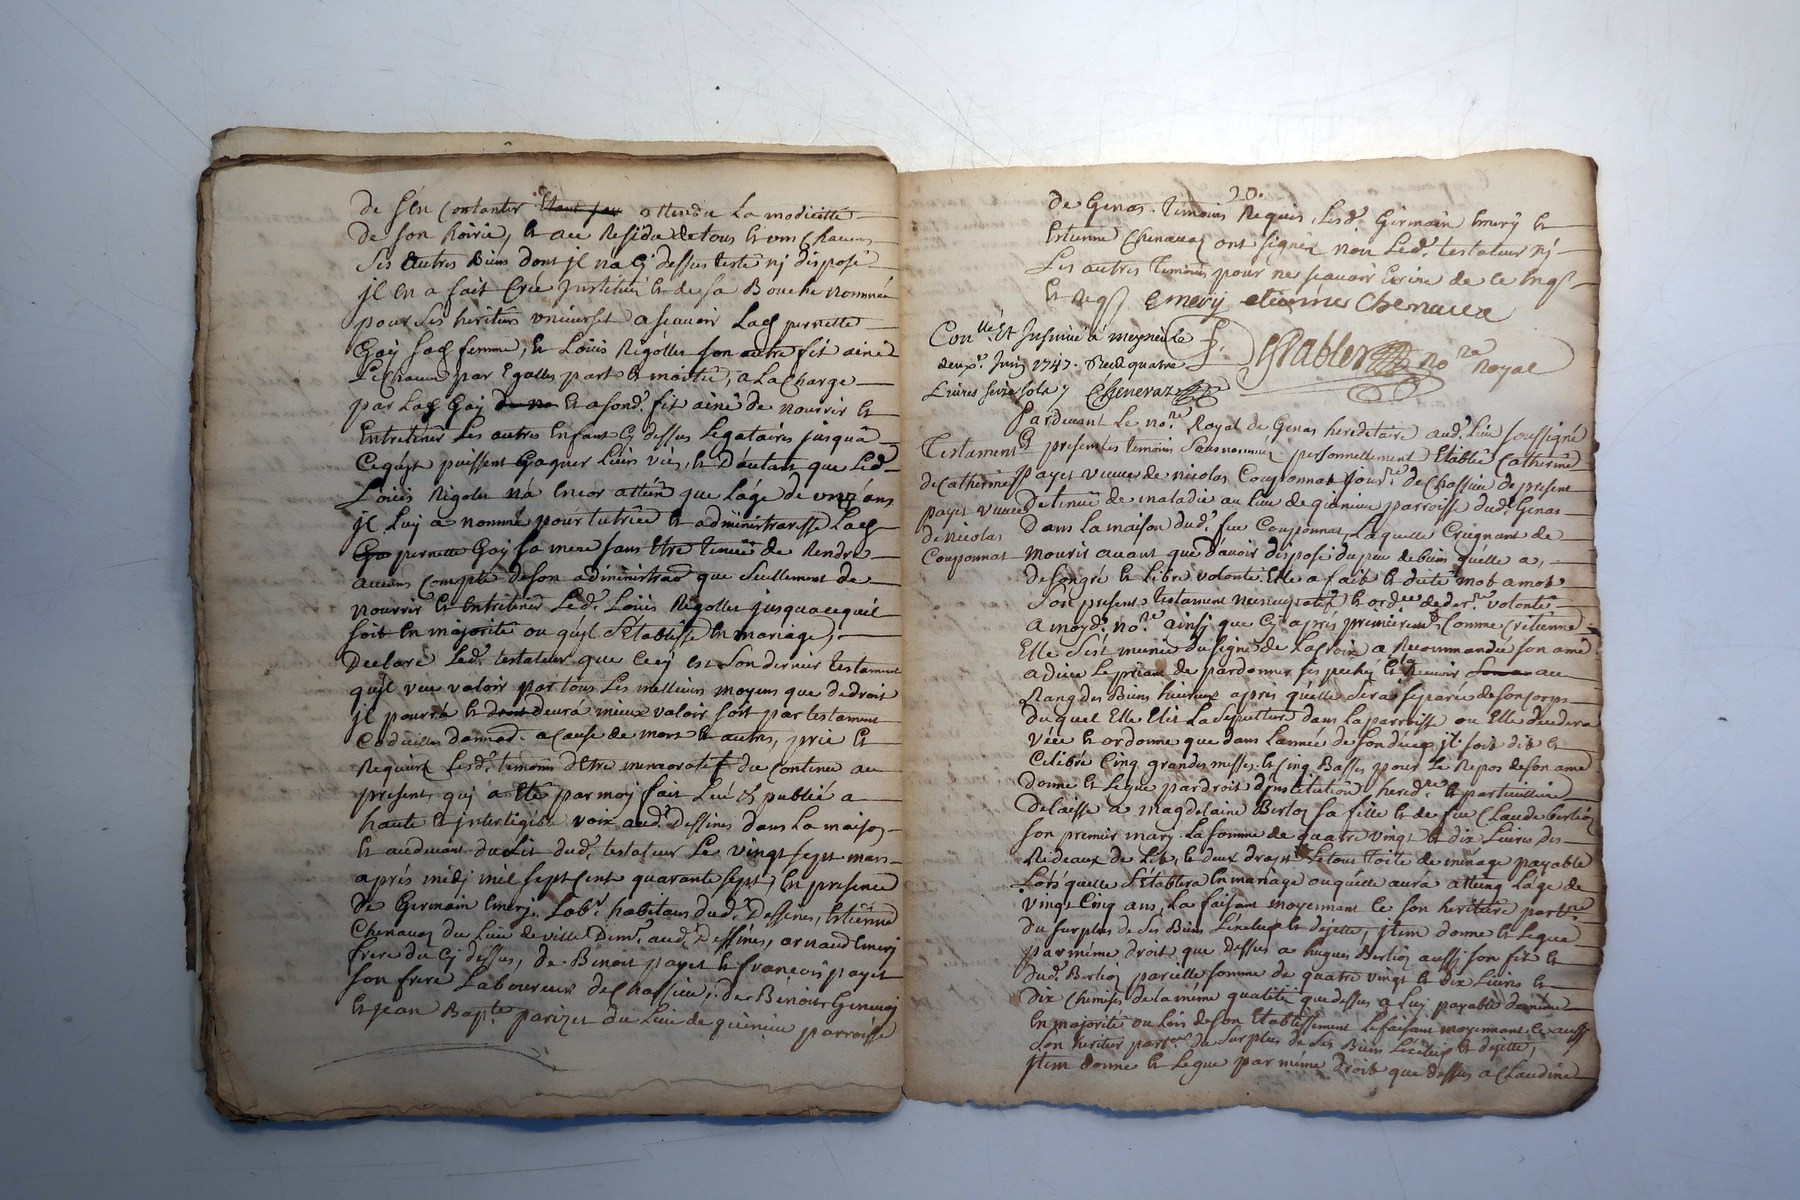 de s'en contanter attendu la modicitté
de son hoirie, et au Residu de tous et uns chacuns
ses autres Biens dont jl na cy dessus testé nj disposé
jl en a fait crée jnstitué et de sa Bouche nommée
pour ses heritiers universel a scavoir lad pernette
Gaÿ sad femme, et Loüis Rigollet son autre fit ainé
par Egalles part et moitié, a la charge
par lad Gaÿ et a sond. fit ainé de nourrir et
Entretenir les autres Enfant cy dessus legataires jusqu'a
ce qu'jls puissent Gagner leurs vies, et D'autant que led
Loüis Rigolet na encor atteint que l'age de unze ans
jl luÿ a nommé pour tutrice et administraresse lad
pernette Gaÿ sa mere sans Etre tenuë de Rendre
aucuns compte de son administrao que seullement de
nourrir et entretenir led. Loüis Rigollet jusqua ce quil
soit en majorité ou qu'jl s'Etablisse en mariage,
Declare led. testateur que cecy est son dernier testament
qu'jl veu valoir par tous les meillieurs moyens que de droit
jl pourra et deura mieux valoir soit par testament
codicilles donnao. a cause de mort et autres, prie et
Requiert lesd. temoins d'Etre memoratif du contenu au
present, qui a Eté par moy fait leu et publié a
haute et jnterligible voix aud. Dessines dans la maison
et audevant du lit dud. testateur le vingt sept mars
aprés midj mil sept cent quarante sept, en presence
de Germain Emerj. Lab.r habitans dud. Dessines, Estienne
Chenauaz du lieu de ville aud. Dessines, arnaud Emerj
frere du cj dessus, de Benoit payet et françois payet
son frere Laboureur de Chassieu, de Bénoit Genevaj
et jean Bap.te parizet du lieu de quinieu parroisse
20.
de Genas. temoins Requis, lesd. Germain Emerÿ et
Estienne Chenauaz ont signés non led. testateur nj
les autres temoins pour ne scauoir Ecrire de ce Enqs
et Reqs Emerÿ etienne Chenaua
Con.llé et Jnsinüé a meyzieu le
deux.e Juin 1747. Reçu quatre
Livres seize sols Cheneraz
no.re Royal
Pardeuant le no.re Royal de Genas hereditaire aud. lieu soussigné
Et presents les temoins sousnommés personnellement Etablie Catherine
Payet veuue de nicolas Couponnat jour.r de Chassieu de present
Detenuë de maladie au lieu de quinieu parroisse dud. Genas
Dans la maison dud. feu Couponnat, Laquelle Creignant de
mourir auant que d'auoir disposé du peu de bien qu'elle a,
de son gré et libre volonté Elle a fait et dicté mot a mot
son present testament nuncupatif et ord.ce de der.re volonté
a moyd. no.re ainsj que cj aprés premierem.t comme cretienne
Elle s'est munie du signe de la croix a Recommandée son ame
a dieu le priant de pardonner ses peché et la Receuoir au
Rang des Biens heureux aprés qu'elle sera separée de son corps
duquel Elle Elit la sepulture dans la parroisse ou Elle decedera
veut et ordonne que dans l'année de son décés jl soit dit et
Celebré Cinq grandes messes et Cinq Basses pour le Repos de son ame
donne et legue par droit d'jnstitution hered.re et particulliere
delaisse a magdelaine Berlioz sa fille et de feu Claude berlioz
son premier mary la somme de quatre vingt et dix Livres des
Redeaux de Lit, et deux draps le tout toile de ménage payable
Lors qu'elle s'Etablera en mariage ou qu'elle aura atteint l'age de
vingt Cinq ans, la faisant moyennant ce son heritiere part.re
du surplus de ses Biens l'exclud et dejette, jtem donne et legue
par même droit que dessus a hugues Berlioz aussj son fit et
dud. Berlioz parielle somme de quatre vingt et dix Livres et
dix chemises de la même qualité que dessus a luy payable de même
en majorité ou Lors de son Etablissement le faisant moyennant ce aussy
son heritier part.er du surplus de ses Biens l'exclud et dejette,
jtem donne et legue par même droit que dessus a Claudine
Testament
de Catherine
payet veuue
de nicolas
Couponnat